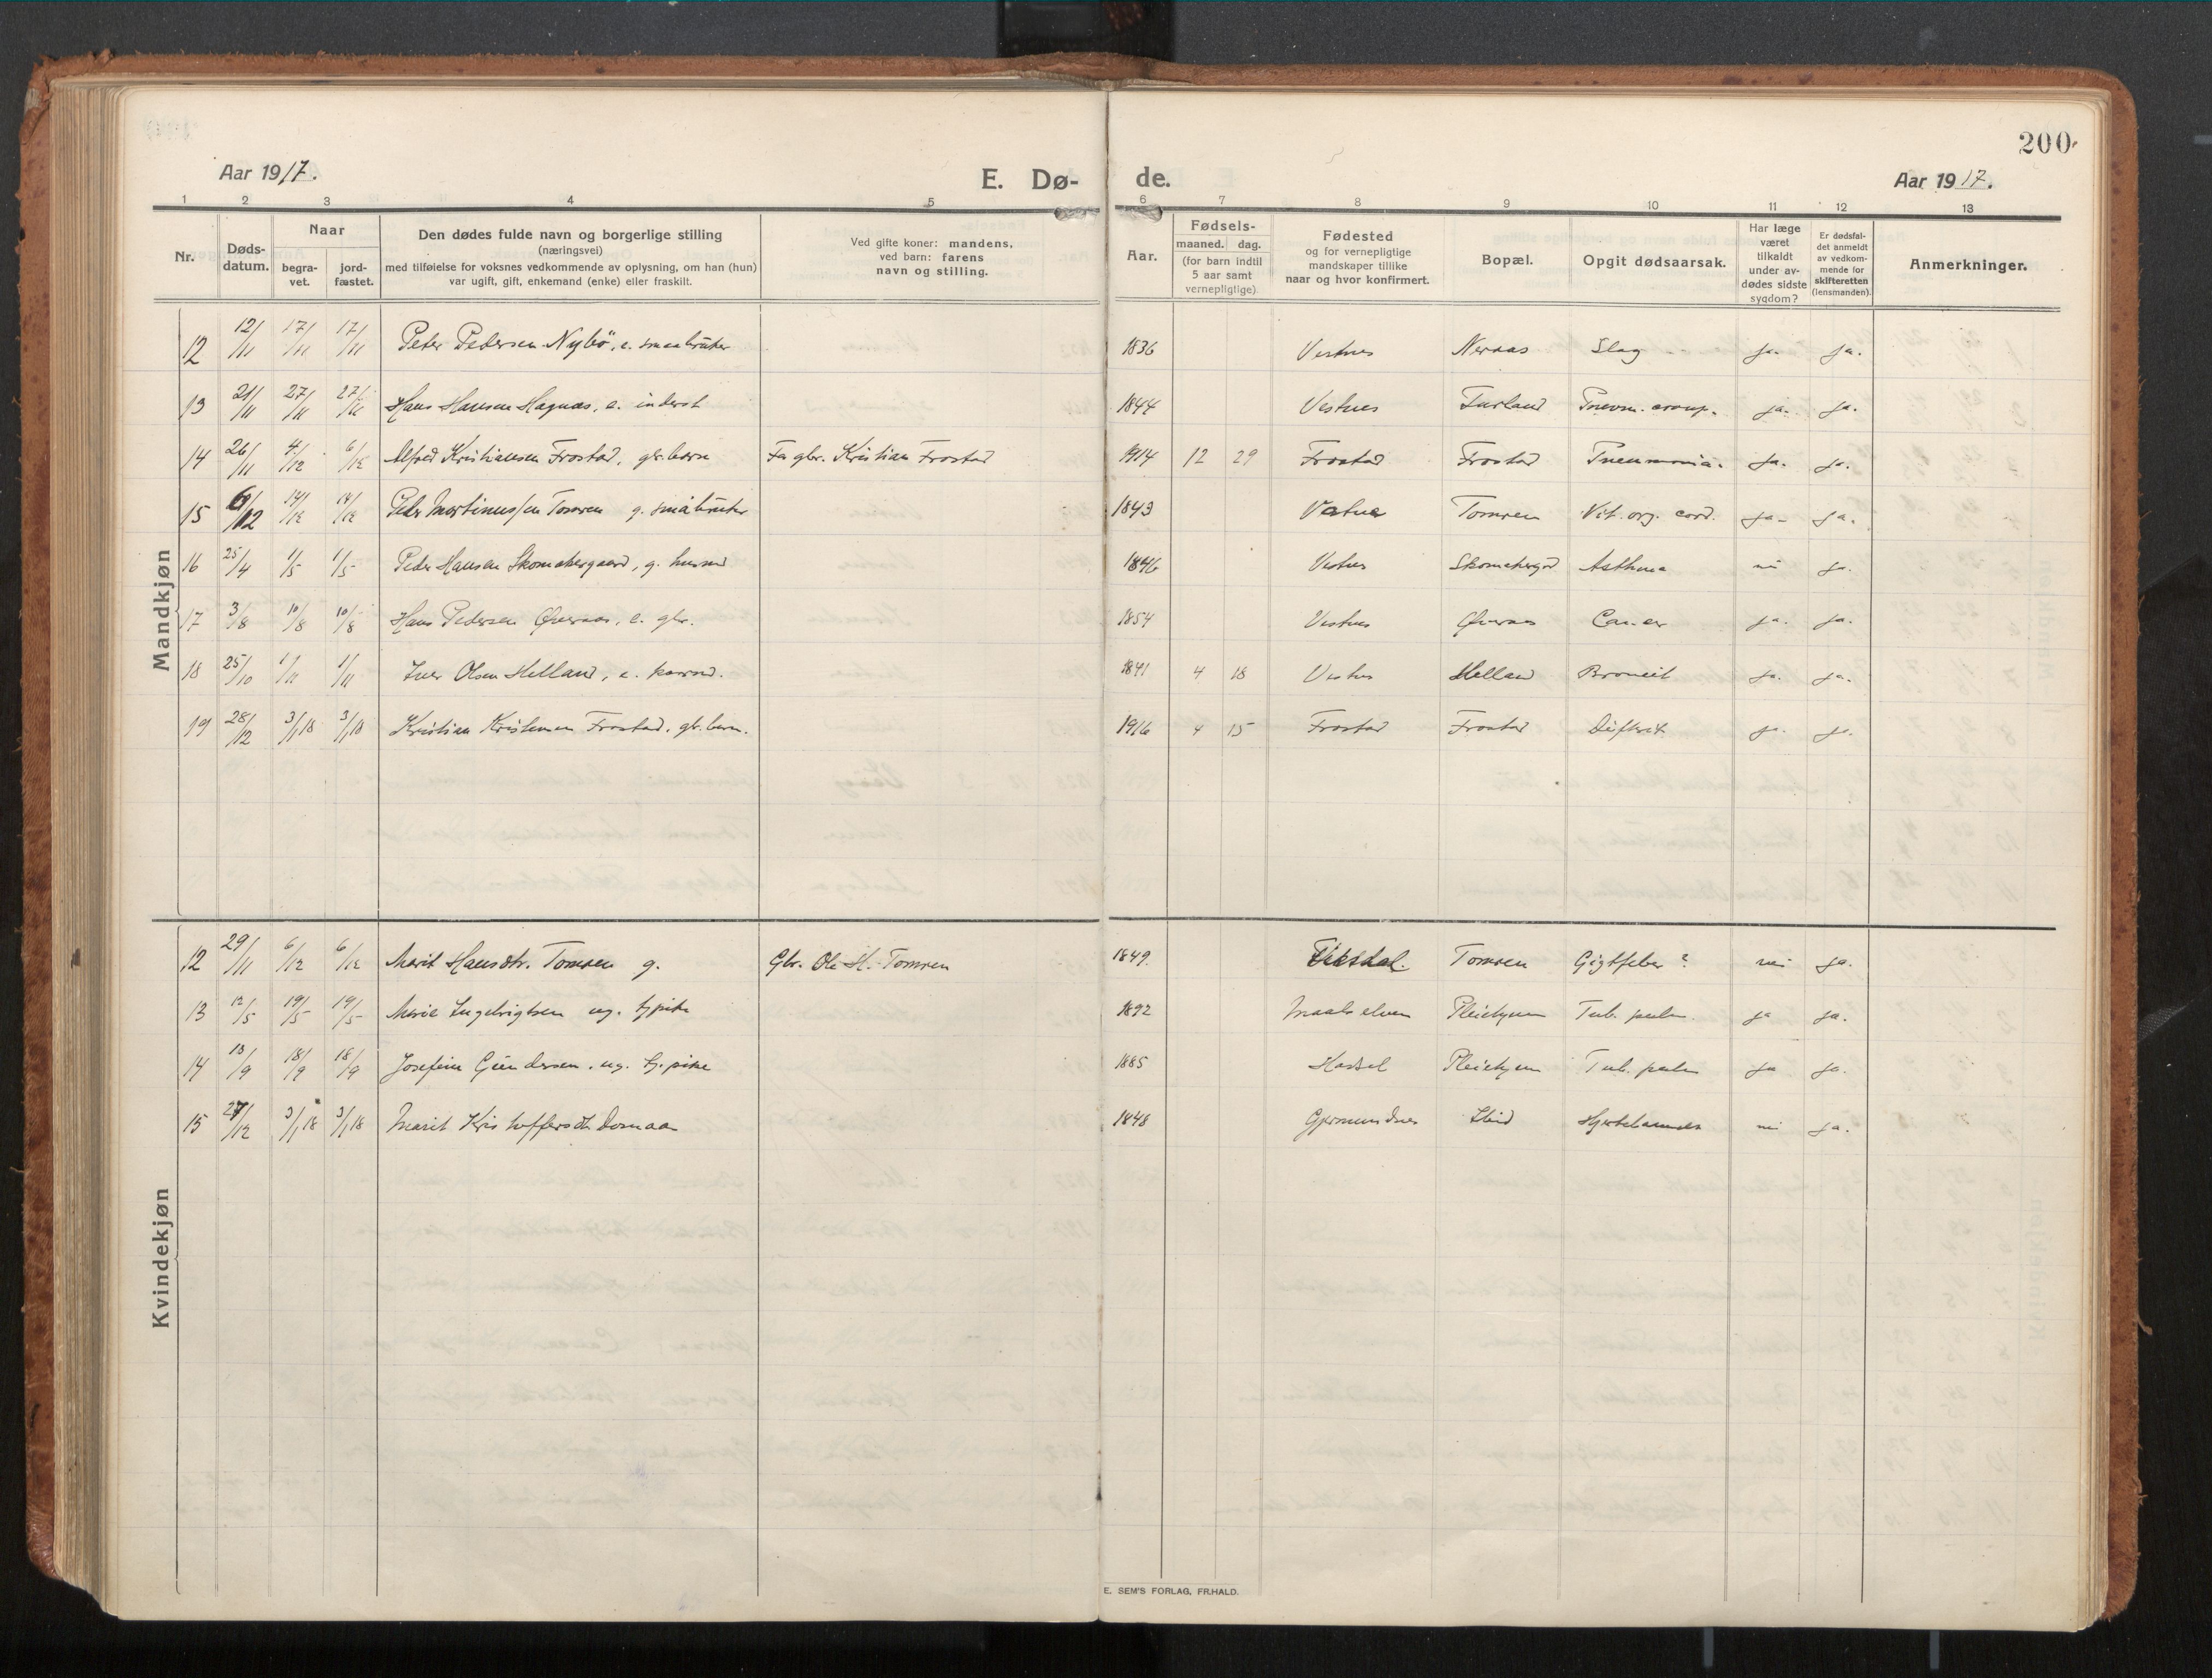 200
Aar 1917.
E. Dø-
de.
Aar 1917.
1 2 3 4 5 6 7 8 9 10 11 12 13
Nr.
Døds-
datum.
Naar
begra-
vet.
jord-
fæstet.
Den dødes fulde navn og borgerlige stilling
(næringsvei)
med tilføielse for voksnes vedkommende av oplysning, om han (hun)
var ugift, gift, enkemand (enke) eller fraskilt.
Ved gifte koner: mandens,
ved barn: farens
navn og stilling.
Aar.
Fødsels-
maaned. dag.
(for barn indtil
5 aar samt
vernepligtige).
Fødested
og for vernepligtige
mandskaper tillike
naar og hvor konfirmert.
Bopæl.
Opgit dødsaarsak.
Har læge
været
tilkaldt
under av-
dødes sidste
sygdom?
Er dødsfal-
det anmeldt
av vedkom-
mende for
skifteretten
(lensmanden).
Anmerkninger.
Mandkjøn
12 12/11 17/11 17/11 Peter Pedersen Nybö, e. smaabruker 1836 Vestnes Neraas Slag ja. ja.
13 21/11 27/11 27/11 Hans Hansen Hagnæs, e. inderst 1844 Vestnes Furland Pnevm. croup. ja. ja.
14 26/11 4/12 6/12 Alfred Kristiansen Frostad, gbr. barn Far gbr. Kristian Frostad 1914 12 29 Frostad Frostad Pneumonia. ja. ja.
15 6/12 14/12 14/12 Peder Martinussen Tomren g. småbruker 1843 Vatne Tomren Vit. org. cord. ja. ja.
16 25/4 1/5 1/5 Peder Hansen Skomakergaard, g. husmd 1846 Vestnes Skomakergrd Asthma nei ja.
17 3/8 10/8 10/8 Hans Pedersen Øveraas, e. gbr. 1854 Vestnes Øveraas Cancer ja. ja.
18 25/10 1/11 1/11 Iver Olsen Helland, e. 1841 4 18 Vestnes Helland ja. ja.
19 28/12 3/1 18 3/1 18 Kristian Kristiansen Frostad, gbr. barn. 1916 4 15 Frostad Frostad Difterit ja. ja.
Kvindekjøn
12 29/11 6/12 6/12 Marit Hansdtr. Tomren g. Gbr. Ole H. Tomren 1849. Tomren Gigtfeber? nei ja.
13 12/5 19/5 19/5 Marie Ingebrigtsen ug. tj.pike 1892 Maalselven Pleiehjem Tub. pulm. ja ja.
14 13/9 18/9 18/9 Josefine Gundersen. ug. tj. pike 1885 Hassel Pleiehjem Tub. pulm ja ja.
15 27/12 3/1 18 3/1 18 Marit Kristoffersdtr 1848 Gjermundnes Ibid nei ja.
E. SEM'S FORLAG, FR.HALD.